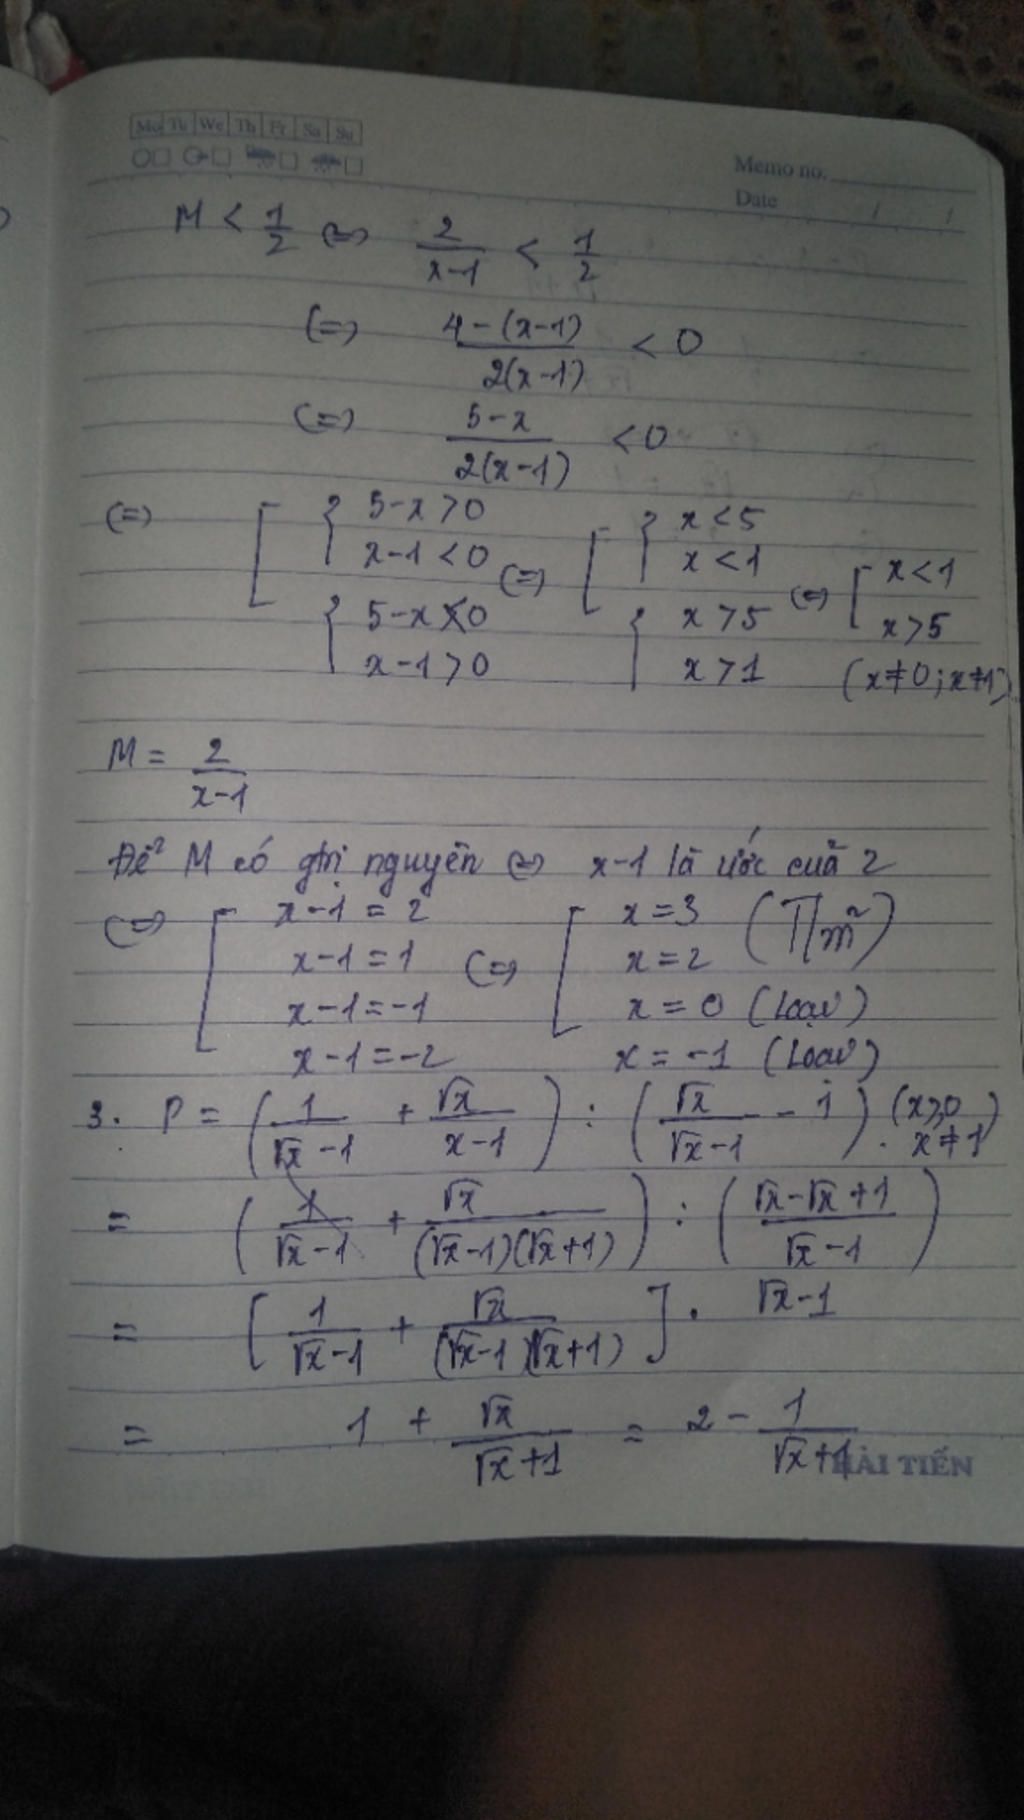 Mo Tu We Th Fr Sa Su
Memo no.
Date / /
M < 1/2 (=) 2/(x-1) < 1/2
(=) (4-(x-1))/(2(x-1)) < 0
(=) (5-x)/(2(x-1)) < 0
(=) [ { 5-x > 0 (=) [ { x < 5 (=) [ x < 1
x-1 < 0 x < 1 x > 5
{ 5-x < 0 { x > 5 (x≠0; x≠1)
x-1 > 0 x > 1
M = 2/(x-1)
Để M có gtrị nguyên (=) x-1 là ước của 2
(=) [ x-1 = 2 (=) [ x = 3 (T/m)
x-1 = 1 x = 2
x-1 = -1 x = 0 (Loại)
x-1 = -2 x = -1 (Loại)
3. P = (1/(√x-1) + √x/(x-1)) : (√x/(√x-1) - 1) (x≥0 x≠1)
= (1/(√x-1) + √x/((√x-1)(√x+1))) : ((√x-√x+1)/(√x-1))
= [1/(√x-1) + √x/((√x-1)(√x+1))] . √x-1
= 1 + √x/(√x+1) = 2 - 1/(√x+1)
HẢI TIẾN